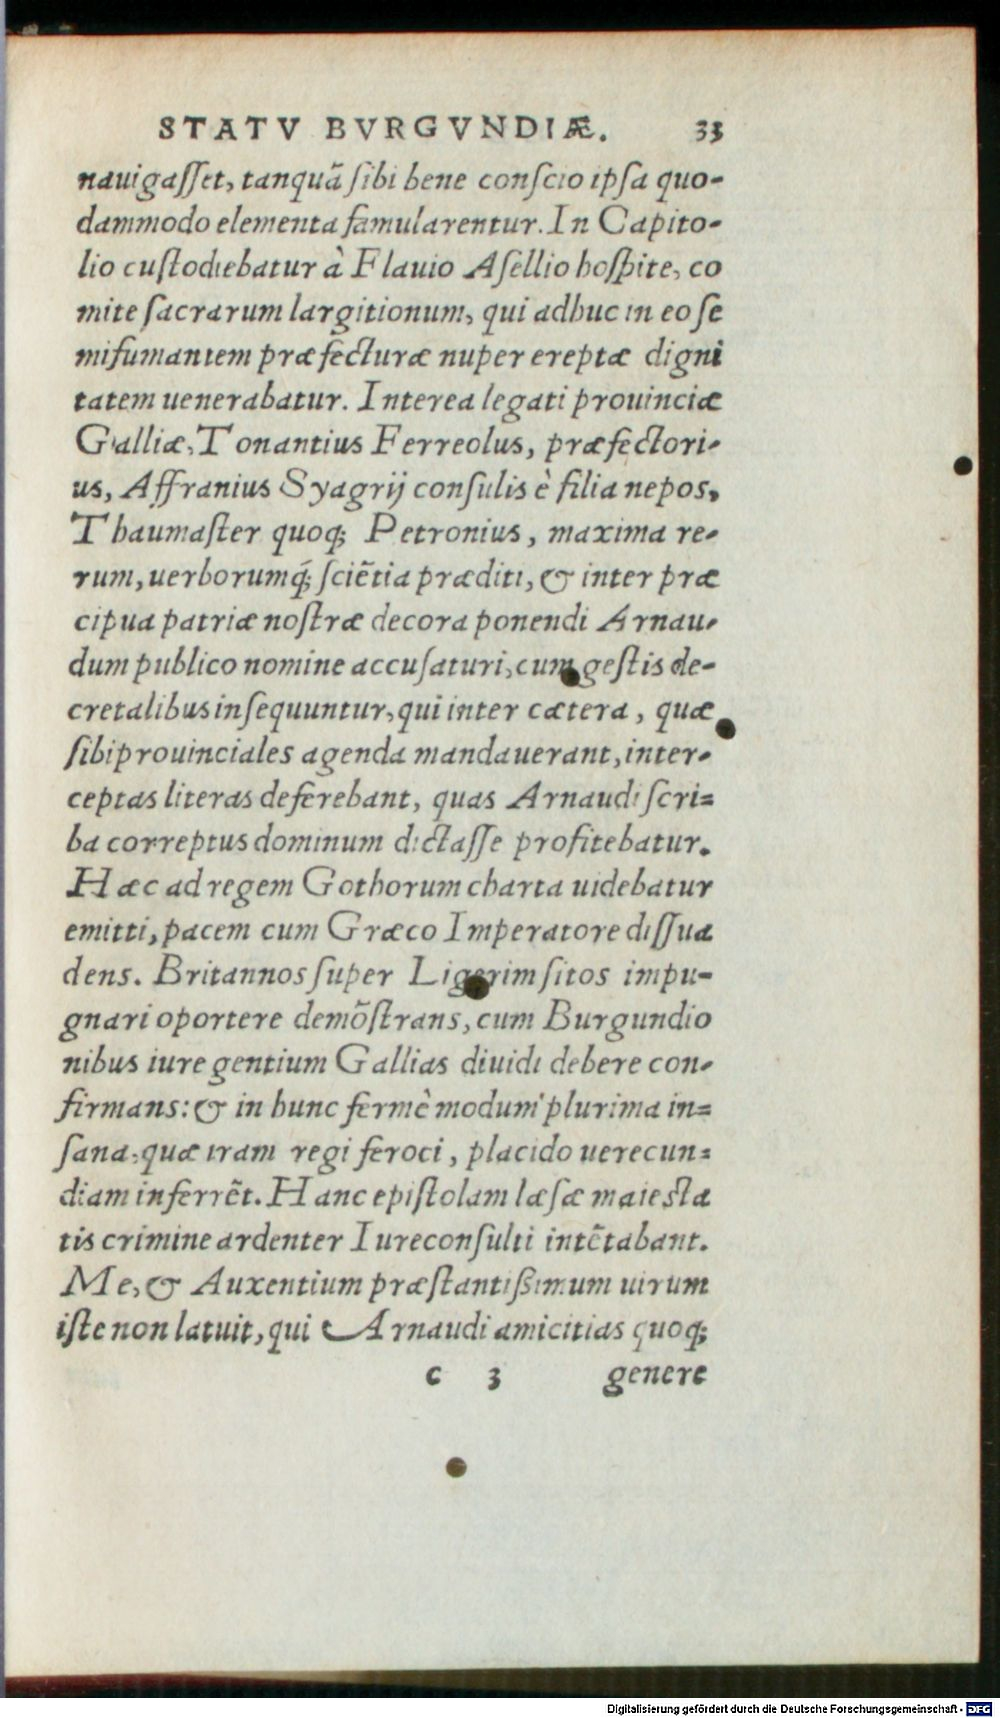 STATV BVRGVNDIÆ. 33
nauigasſet, tanquā ſibi bene conſcio ipſa quo-
dammodo elementa famularentur. In Capito-
lio cuſtodiebatur à Flauio Aſellio hoſpite, co
mite ſacrarum largitionum, qui adhuc in eo ſe
mifumantem præfecturæ nuper ereptæ digni
tatem uenerabatur. Interea legati prouinciæ
Galliæ, Tonantius Ferreolus, præfectori-
us, Affranius Syagrij conſulis è filia nepos,
Thaumaſter quoq; Petronius, maxima re-
rum, uerborumq́; ſciẽtia præditi, & inter præ
cipua patriæ noſtræ decora ponendi Arnau-
dum publico nomine accuſaturi, cum geſtis de-
cretalibus inſequuntur, qui inter cætera, quæ
ſibi prouinciales agenda mandauerant, inter-
ceptas literas deferebant, quas Arnaudi ſcri-
ba correptus dominum dictaſſe profitebatur.
Hæc ad regem Gothorum charta uidebatur
emitti, pacem cum Græco Imperatore diſſua
dens. Britannos ſuper Ligerim ſitos impu-
gnari oportere demõſtrans, cum Burgundio
nibus iure gentium Gallias diuidi debere con-
firmans: & in hunc fermè modum plurima in-
ſana, quæ iram regi feroci, placido uerecun-
diam inferrẽt. Hanc epiſtolam læſæ maieſta
tis crimine ardenter Iureconſulti intẽtabant.
Me, & Auxentium præſtantißimum uirum
iſte non latuit, qui Arnaudi amicitias quoq;
c 3 genere
Digitalisierung gefördert durch die Deutsche Forschungsgemeinschaft - DFG